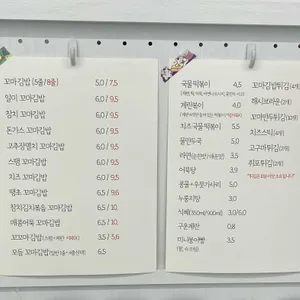 꼬마김밥 [5줄/8줄] 5.0 / 7.5
일미 꼬마김밥 6.0 / 9.5
참치 꼬마김밥 6.0 / 9.5
돈가스 꼬마김밥 6.0 / 9.5
고추장멸치 꼬마김밥 6.0 / 9.5
스팸 꼬마김밥 6.0 / 9.5
치즈 꼬마김밥 6.0 / 9.5
땡초 꼬마김밥 6.0 / 9.6
참치김치볶음 꼬마김밥 6.5 / 10.
매콤어묵 꼬마김밥 6.5 / 10.
꼬꼬마김밥 3.5 / 5.6
모듬 꼬마김밥 6.5
국물떡볶이 4.5
계란볶이 5.0
치즈 국물떡볶이 5.5
물만두국 5.0
라면 3.5
어묵탕 3.9
콩물+우뭇가사리 5.0
누룽지탕 3.0
식혜(350ml/900ml) 3.0/6.0
구운계란 0.8
미니붕어빵 3.5
꼬마김밥튀김(4개)
해시브라운(2개)
꼬마만두튀김(10개)
치즈스틱(4개)
고구마튀김
쥐포튀김(2개)